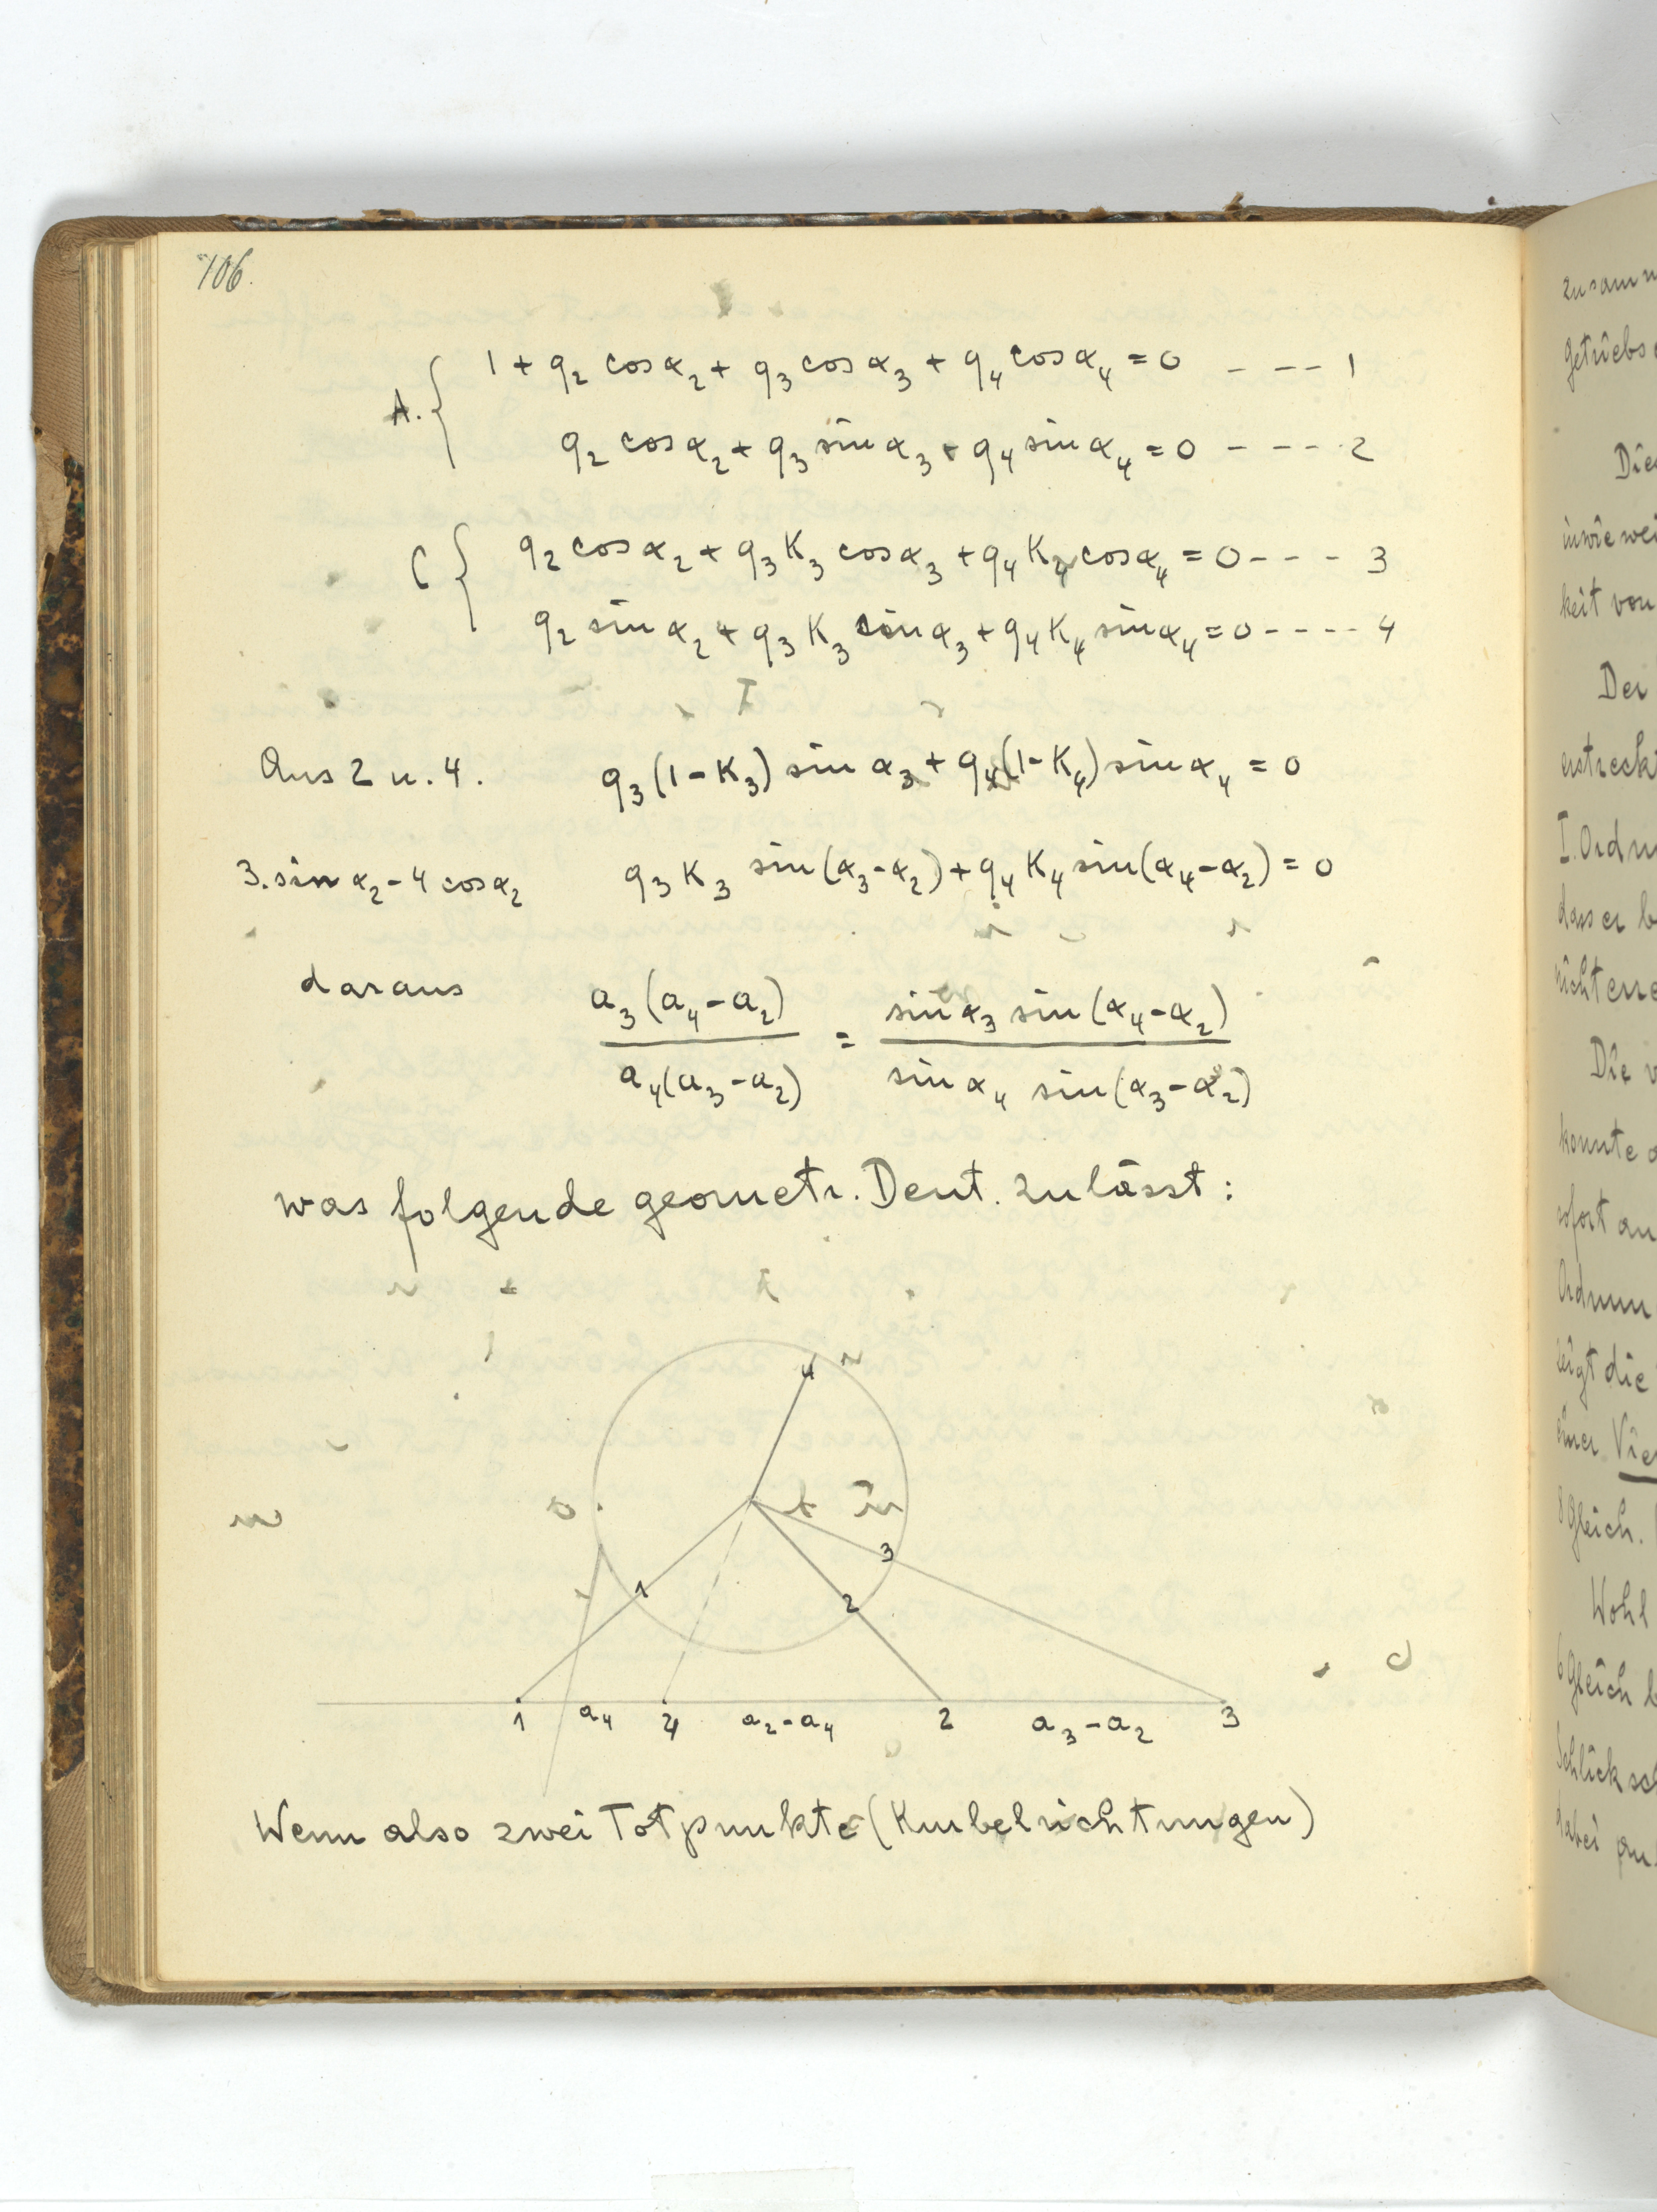 106.
A. { 1 + q₂ cos α₂ + q₃ cos α₃ + q₄ cos α₄ = 0 - - - - 1
q₂ cos α₂ + q₃ sin α₃ + q₄ sin α₄ = 0 - - - - 2
C { q₂ cos α₂ + q₃ K₃ cos α₃ + q₄ K₄ cos α₄ = 0 - - - 3
q₂ sin α₂ + q₃ K₃ sin α₃ + q₄ K₄ sin α₄ = 0 - - - - 4
Aus 2 u. 4. q₃(1-K₃) sin α₃ + q₄(1-K₄) sin α₄ = 0
3. sin α₂ - 4 cos α₂ q₃ K₃ sin(α₃-α₂) + q₄ K₄ sin(α₄-α₂) = 0
daraus a₃(a₄-a₂) / a₄(a₃-a₂) = sin α₃ sin(α₄-α₂) / sin α₄ sin(α₃-α₂)
was folgende geometr. Deut. zulässt:
4
3
1 2
1 a₄ 4 a₂-a₄ 2 a₃-a₂ 3
Wenn also zwei Totpunkte (Kurbelrichtungen)
zusam
getriebs
Die
inwiewei
keit von
Der
erstreck
I. Ordn
dass er b
nicht erre
Die v
konnte
sofort an
Ordnun
zeigt die
einer Vie
8 Gleich.
Wohl
6 Gleich b
Schlick sc
dabei